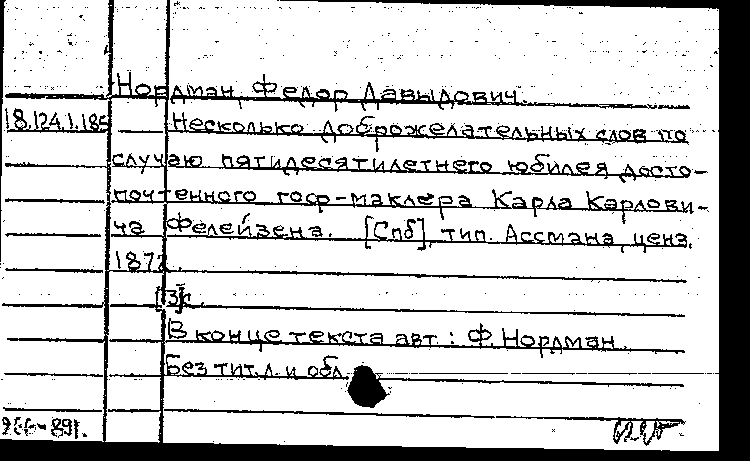 Нордман, Федор Давыдович.
18.124.1.185 Несколько доброжелательных слов по
случаю пятидесятилетнего юбилея досто-
почтенного гоф-маклера Карла Карлови-
ча Фелейзена. [Спб], тип. Ассмана, ценз.
1872.
[3]с.
В конце текста авт.: Ф. Нордман.
Без тит.л. и обл.
266-891.